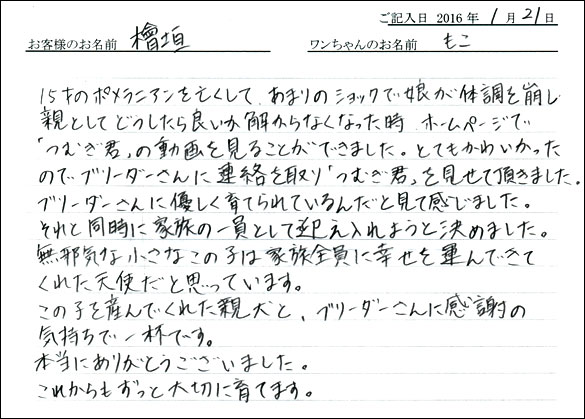 ご記入日 2016年 1月 21日
お客様のお名前 檜垣 ワンちゃんのお名前 もこ
15才のポメラニアンを亡くして、あまりのショックで娘が体調を崩し
親としてどうしたら良いか解からなくなった時 ホームページで
「つむぎ君」の動画を見ることができました。とてもかわいかった
のでブリーダーさんに連絡を取り「つむぎ君」を見せて頂きました。
ブリーダーさんに優しく育てられているんだと見て感じました。
それと同時に家族の一員として迎え入れようと決めました。
無邪気な小さなこの子は家族全員に幸せを運んできて
くれた天使だと思っています。
この子を産んでくれた親犬と、ブリーダーさんに感謝の
気持ちで一杯です。
本当にありがとうございました。
これからもずっと大切に育てます。